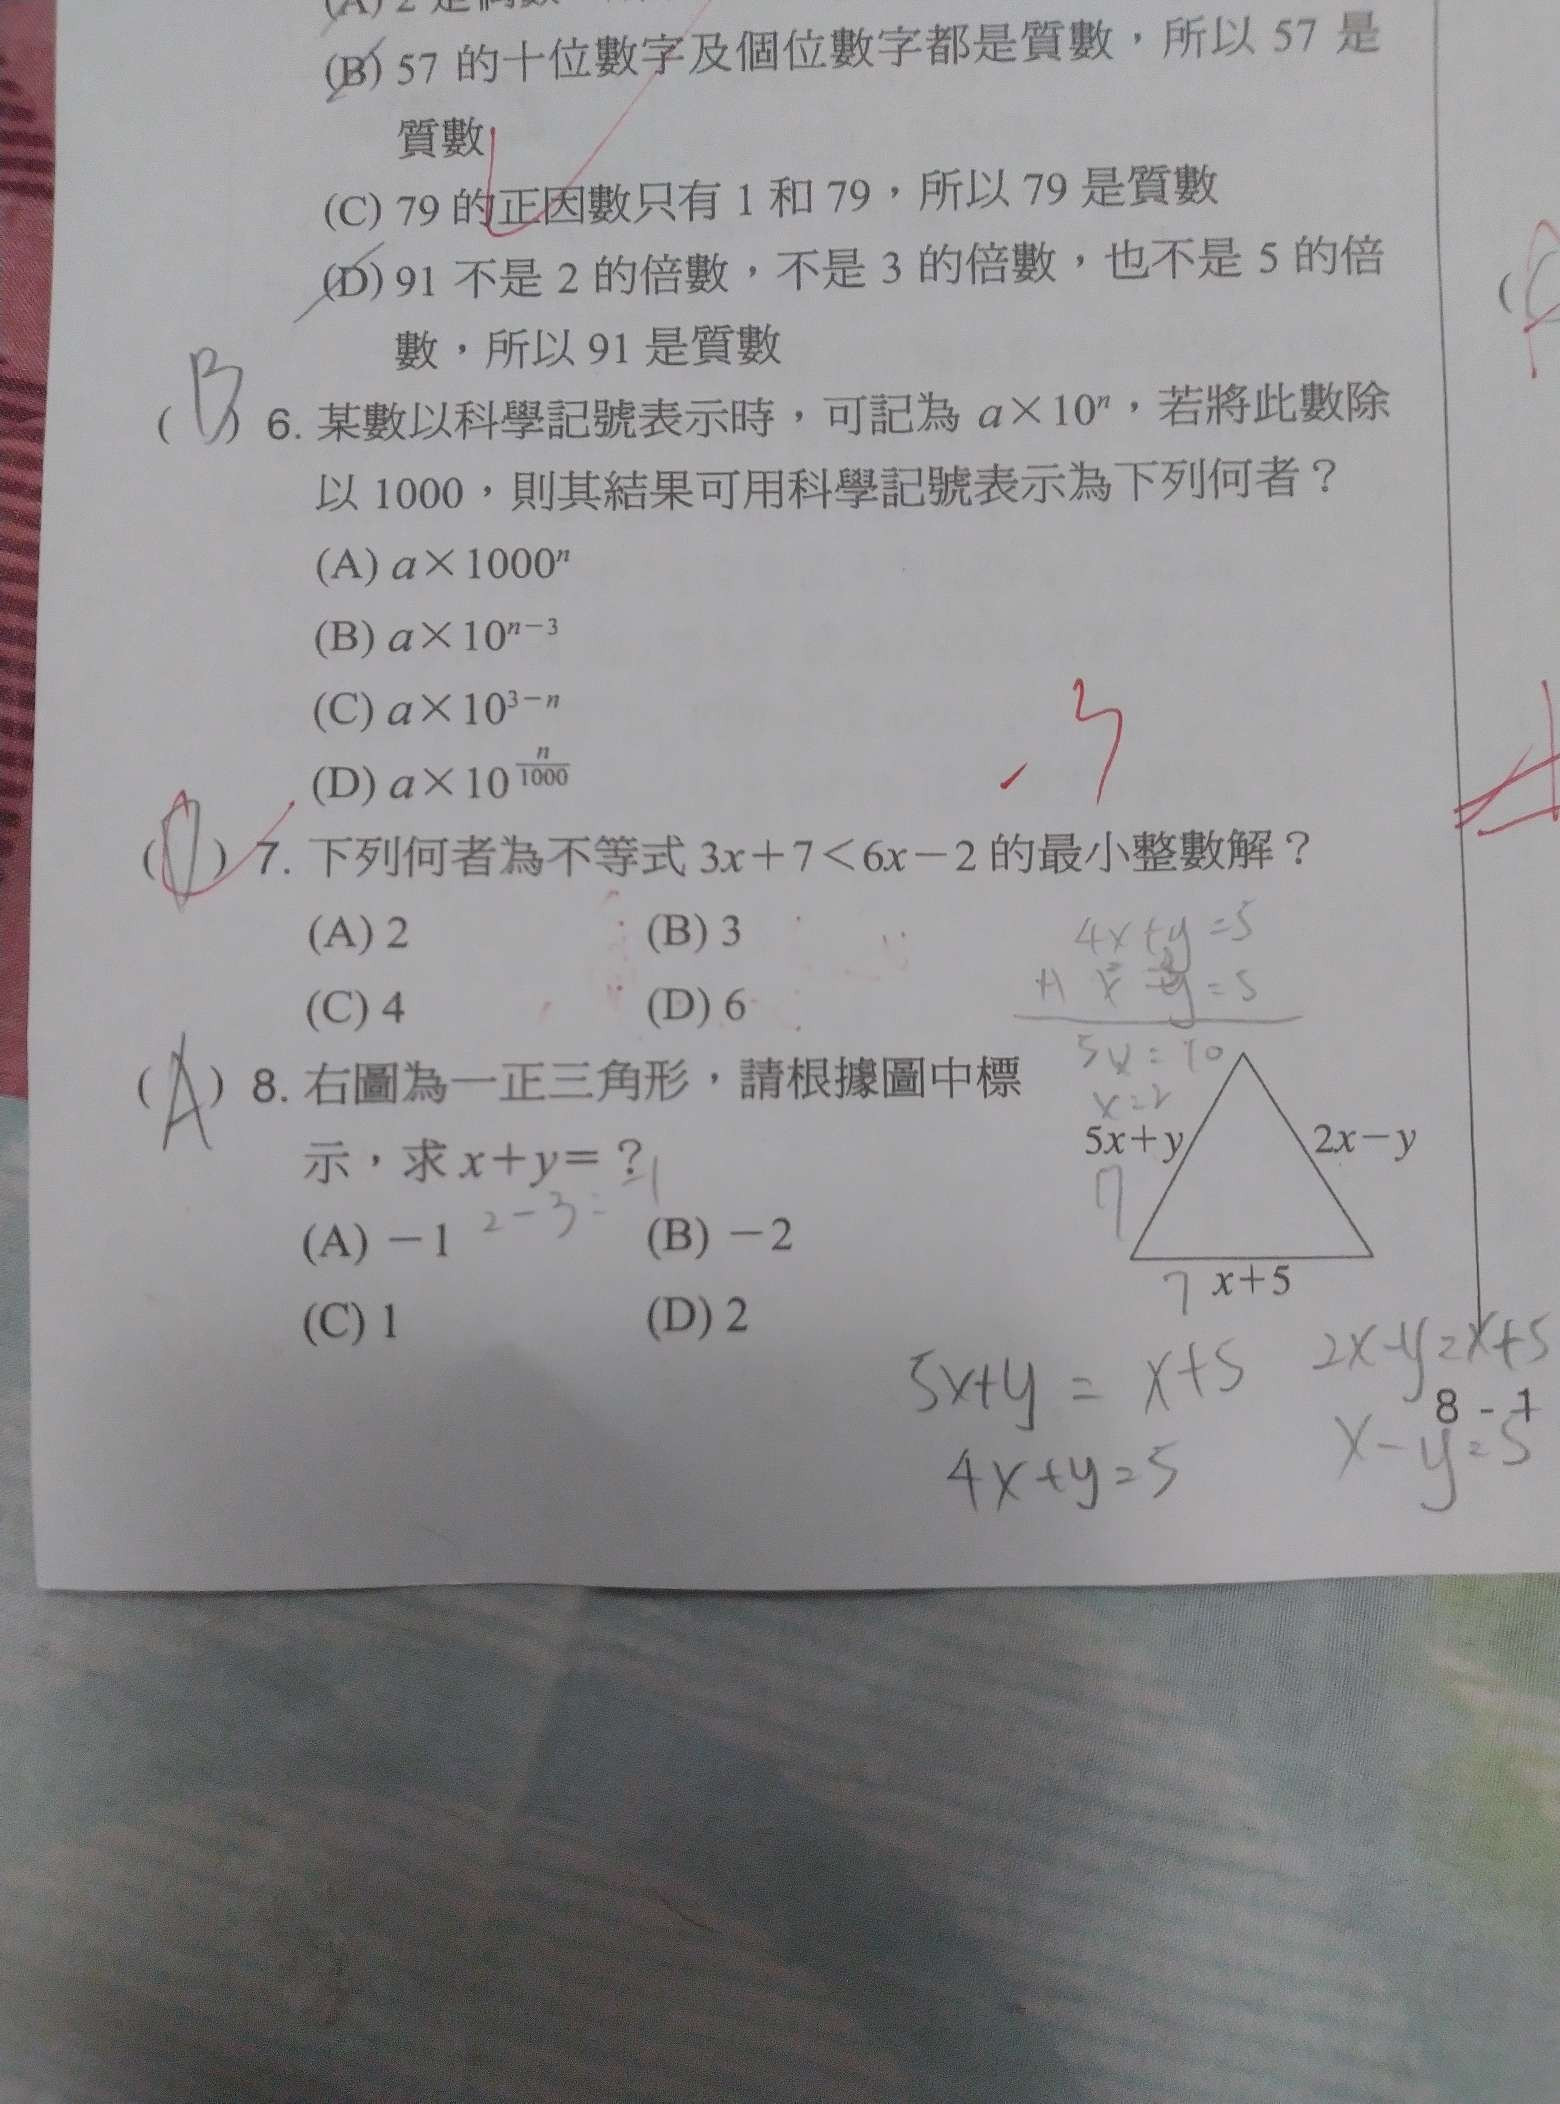 (B) 57 的十位數字及個位數字都是質數，所以 57 是
質數
(C) 79 的正因數只有 1 和 79，所以 79 是質數
(D) 91 不是 2 的倍數，不是 3 的倍數，也不是 5 的倍
數，所以 91 是質數
( B ) 6. 某數以科學記號表示時，可記為 a×10ⁿ，若將此數除
以 1000，則其結果可用科學記號表示為下列何者？
(A) a×1000ⁿ
(B) a×10ⁿ⁻³
(C) a×10³⁻ⁿ
(D) a×10^(n/1000)
3
( ) 7. 下列何者為不等式 3x＋7＜6x－2 的最小整數解？
(A) 2 (B) 3
(C) 4 (D) 6
4x+y=5
5x=10
x=2
( A ) 8. 右圖為一正三角形，請根據圖中標
示，求 x＋y＝？
2-3=-1
(A) －1 (B) －2
(C) 1 (D) 2
5x＋y 2x－y
7
7 x＋5
5x+y = x+5 2x-y=x+5
8 - 1
4x+y=5 x-y=5